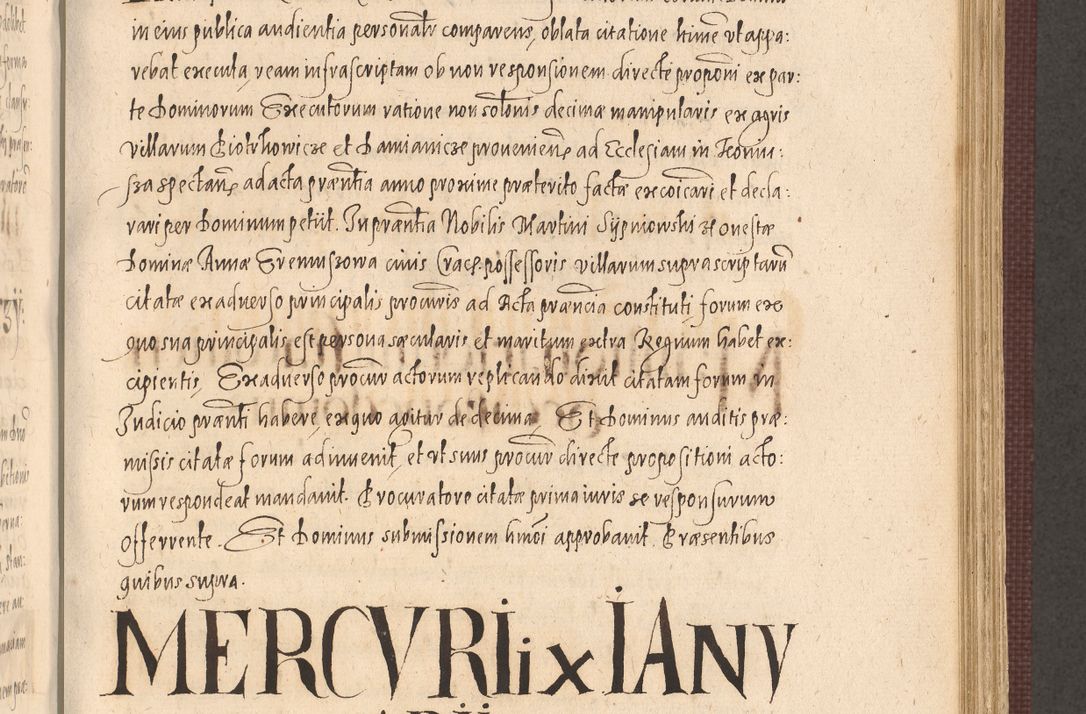 in eius publica audientia personalr comparens, oblata citatione himē vt appa:
rebat executa, ream infrascriptam ob non responsionem directe proponi ex par:
te Dominorum Executorum ratione non solōnis decimæ manipularis ex agris
villarum Piotrhowicze et Damianicze provenienē ad Ecclesiam in
spectanē ad acta præntia anno proxime præterito factæ excoicari et decla:
rari per Dominum petiit. In præntia Nobilis Martini Sÿpniowski Honestæ
Dominæ Annæ civis Crac possessoris villarum suprascriptarū
citatæ ex adverso principalis procuris ad Acta præncia constituti forum ex
quo sua principalis est persona sæcularis et maritum extra Regnum habet ex:
cipientis, Ex adverso procur actorum replicando dixit citatam forum in
Judicio prænti habere, ex quo agitur de decima, Et Dominus auditis præ:
missis citatæ forum adinvenit, et vt suus procur directe propositioni acto:
rum respondeat mandavit. Procuratore citatæ prima iuris se responsurum
offerrente. Et Dominus submissionem hmōi approbavit. Præsentibus
quibus supra.
MERCVRII IX IANV